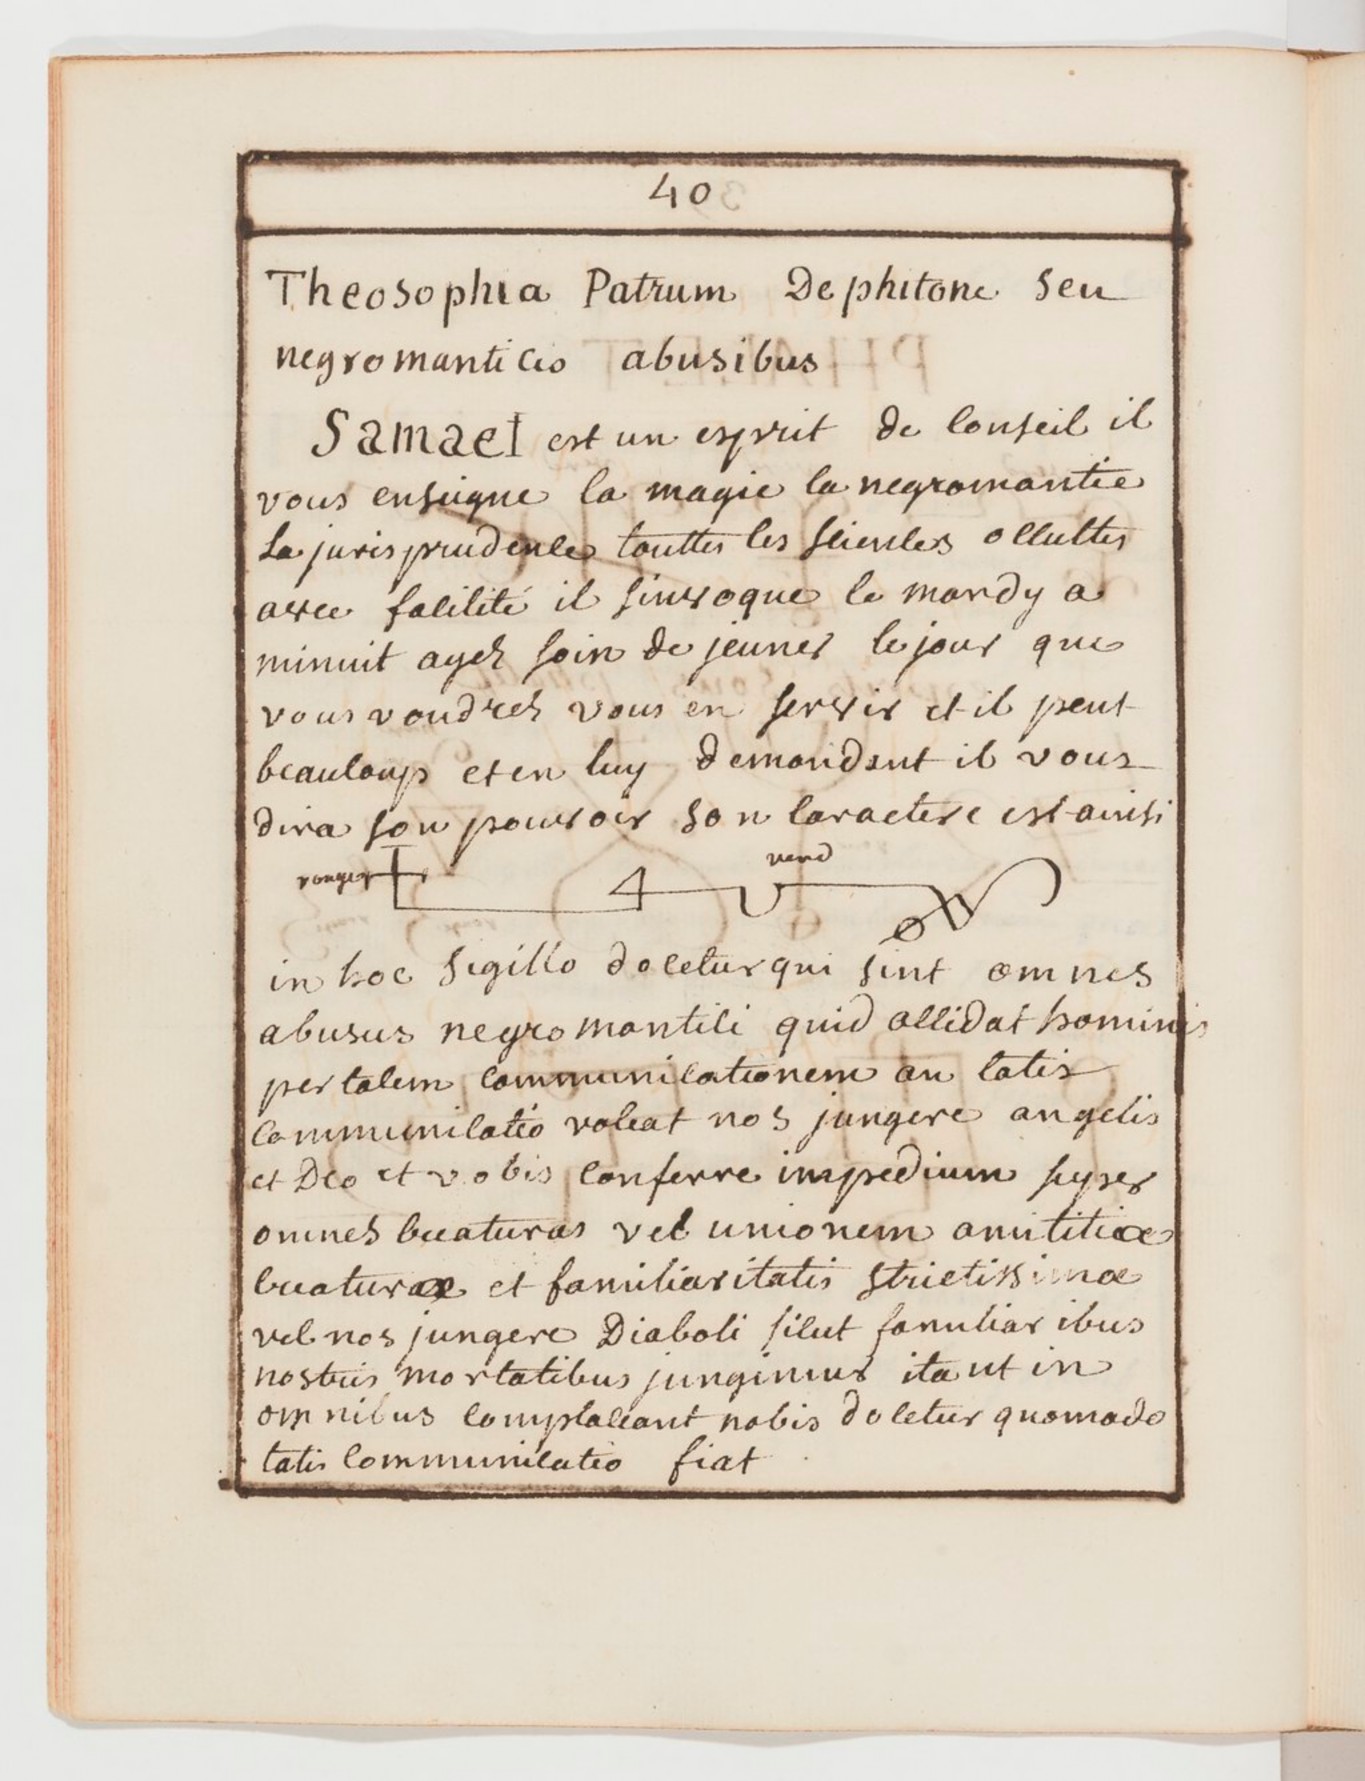 40
Theosophia Patrum De phitone seu
negromanticis abusibus
Samael est un esprit de conseil il
vous enseigne la magie la negromantie
La jurisprudence touttes les sciences occultes
avec facilité il sinvoque le mardy a
minuit ayez soin de jeuner le jour que
vous voudrez vous en servir et il peut
beaucoup et en luy demandant il vous
dira son pouvoir son caractere est ainsi
rouge verd
in hoc sigillo docetur qui sint omnes
abusus negromantici quid accidat hominis
per talem communicationem an talis
communicatio valeat nos jungere angelis
et Deo et vobis conferre impedium super
omnes creaturas vel unionem amicitiæ
creaturæ et familiaritatis strictissimæ
vel nos jungere Diaboli sicut familiaribus
nostris mortalibus jungimur ita ut in
omnibus complaceant nobis docetur quomodo
talis communicatio fiat